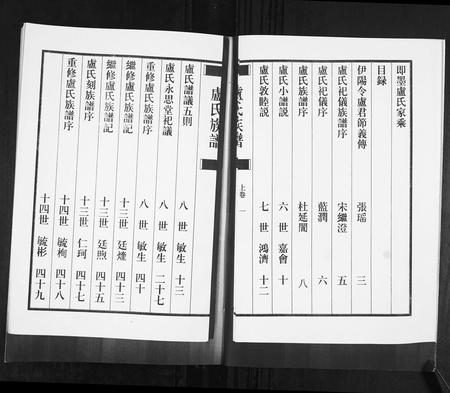 即墨盧氏家乘
目録
伊陽令盧君節義傳 張瑶 三
盧氏祀儀族譜序 宋繼澄 五
盧氏祀儀序 藍潤 六
盧氏族譜序 杜延閶 八
盧氏小譜説 六世 嘉會 十
盧氏敦睦説 七世 鴻濟 十二
盧氏族譜
上卷
一
盧氏族譜
盧氏譜議五則 八世 敏生 十三
盧氏永思堂祀議 八世 敏生 二十七
重修盧氏族譜序 八世 敏生 四十
繼修盧氏族譜記 十三世 廷燵 四十三
繼修盧氏族譜記 十三世 廷煦 四十五
盧氏刻族譜序 十三世 仁珂 四十七
重修盧氏族譜序 十四世 毓栒 四十八
重修盧氏族譜序 十四世 毓彬 四十九